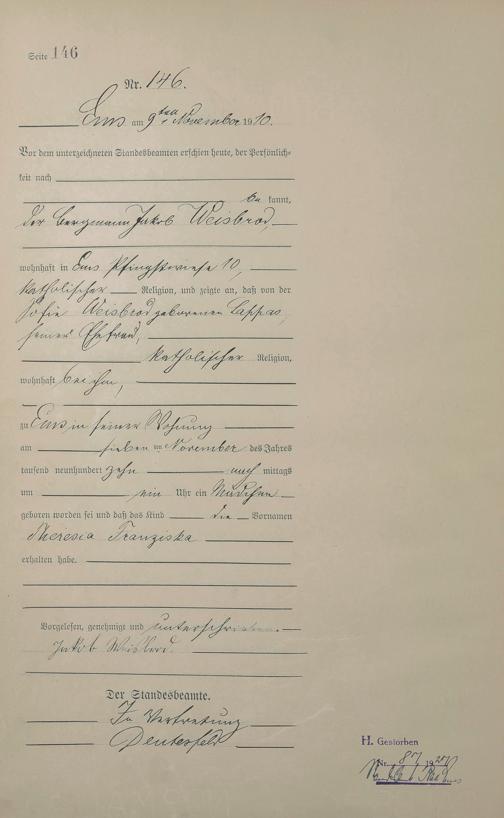 Seite 146
Nr. 146.
Ems am 9ten November 1910.
Vor dem unterzeichneten Standesbeamten erschien heute, der Persönlich-
keit nach
be kannt,
der Bergmann Jakob Weisbrod
wohnhaft in Ems Pfingstwiese 10,
katholischer Religion, und zeigte an, daß von der
Sofie Weisbrod geborenen Lappas,
seiner Ehefrau,
katholischer Religion,
wohnhaft bei ihm,
zu Ems in seiner Wohnung
am sieben ten November des Jahres
tausend neunhundert zehn nach mittags
um ein Uhr ein Mädchen
geboren worden sei und daß das Kind die Vornamen
Theresia Franziska
erhalten habe.
Vorgelesen, genehmigt und unterschrieben.
Jakob Weisbrod.
Der Standesbeamte.
In Vertretung
H. Gestorben
Nr. 87 19